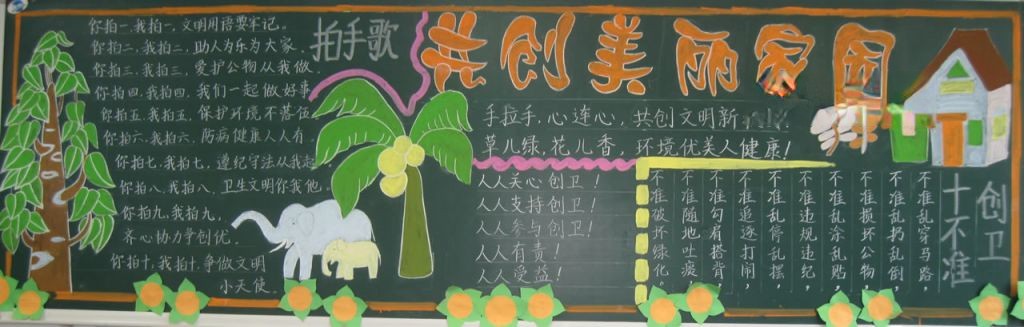 拍手歌
你拍一,我拍一,文明用语要牢记。
你拍二,我拍二,助人为乐为大家。
你拍三,我拍三,爱护公物从我做。
你拍四,我拍四,我们一起做好事
你拍五,我拍五,保护环境不落伍
你拍六,我拍六,防病健康人人有。
你拍七,我拍七,遵纪守法从我起
你拍八,我拍八,卫生文明你我他。
你拍九,我拍九,
齐心协力争创优。
你拍十,我拍十,争做文明
小天使。
共创美丽家园
手拉手,心连心,共创文明新
草儿绿,花儿香,环境优美人健康!
人人关心创卫!
人人支持创卫!
人人参与创卫!
人人有责!
人人受益!
创卫
十不准
不准乱穿马路,
不准乱扔乱倒,
不准损坏公物,
不准乱涂乱贴,
不准违规违纪,
不准乱停乱摆,
不准追逐打闹,
不准勾肩搭背,
不准随地吐痰,
不准破坏绿化,